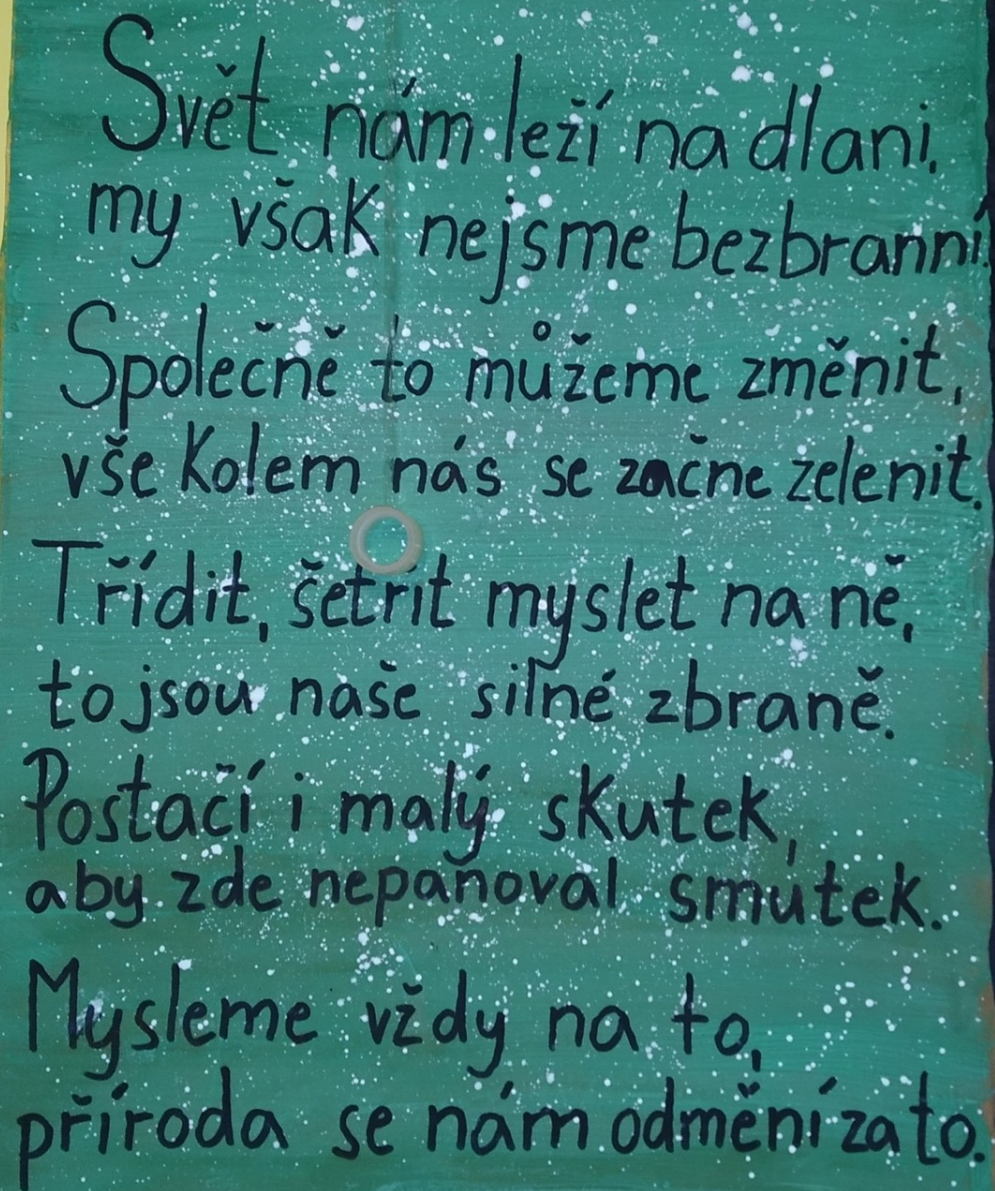 Svět nám leží na dlani,
my však nejsme bezbranní.
Společně to můžeme změnit,
vše kolem nás se začne zelenit.
Třídit, šetrit myslet na ně,
to jsou naše silné zbraně.
Postačí i malý skutek,
aby zde nepanoval smutek.
Mysleme vždy na to,
příroda se nám odmění za to.